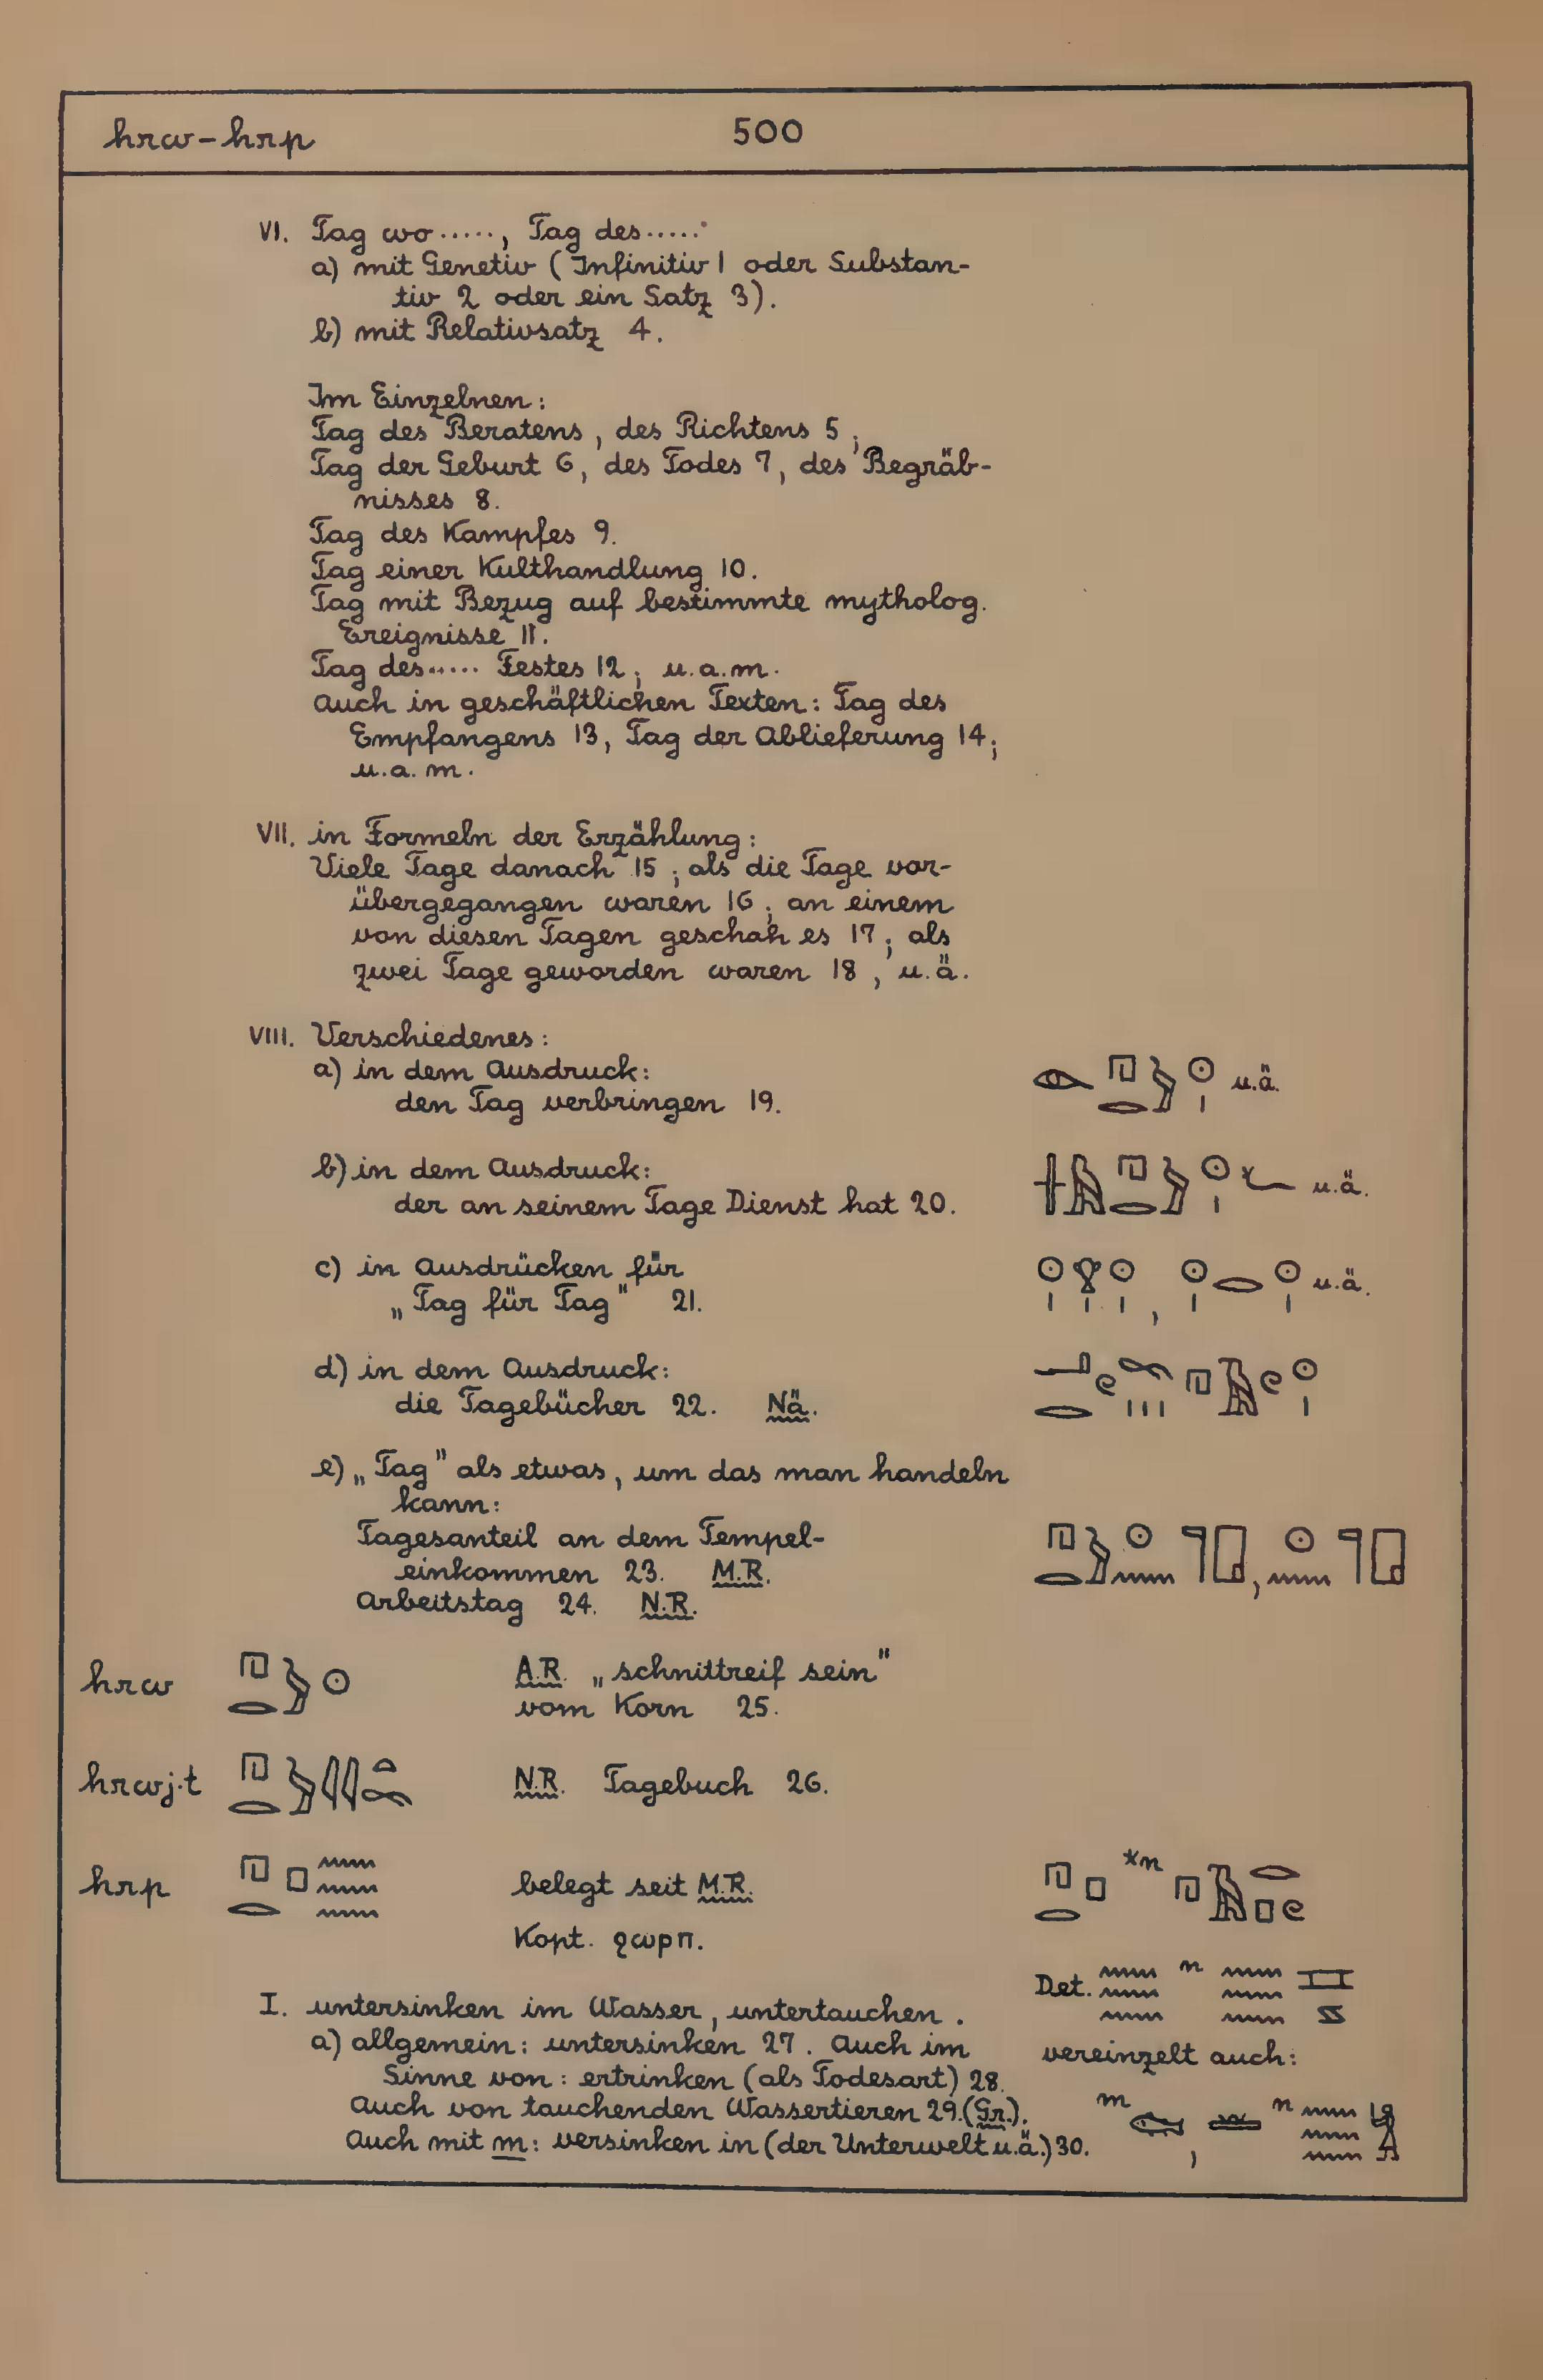 hrw-hrp 500
VI. Tag wo ....., Tag des .....
a) mit Genetiv (Infinitiv 1 oder Substan-
tiv 2 oder ein Satz 3).
b) mit Relativsatz 4.
Im Einzelnen:
Tag des Beratens, des Richtens 5;
Tag der Geburt 6, des Todes 7, des Begräb-
nisses 8.
Tag des Kampfes 9.
Tag einer Kulthandlung 10.
Tag mit Bezug auf bestimmte mytholog.
Ereignisse 11.
Tag des ..... Festes 12; u.a.m.
Auch in geschäftlichen Texten: Tag des
Empfangens 13, Tag der Ablieferung 14;
u.a.m.
VII. in Formeln der Erzählung:
Viele Tage danach 15; als die Tage vor-
übergegangen waren 16; an einem
von diesen Tagen geschah es 17; als
zwei Tage geworden waren 18, u.ä.
VIII. Verschiedenes:
a) in dem Ausdruck:
den Tag verbringen 19. u.ä.
b) in dem Ausdruck:
der an seinem Tage Dienst hat 20. u.ä.
c) in Ausdrücken für
„Tag für Tag" 21. u.ä.
d) in dem Ausdruck:
die Tagebücher 22. Nä.
e) „Tag" als etwas, um das man handeln
kann:
Tagesanteil an dem Tempel-
einkommen 23. M.R.
Arbeitstag 24. N.R.
hrw A.R. „schnittreif sein"
vom Korn 25.
hrwj.t N.R. Tagebuch 26.
hrp belegt seit M.R. *n
Kopt. ϩωρπ.
Det. n
I. untersinken im Wasser, untertauchen.
a) allgemein: untersinken 27. Auch im vereinzelt auch:
Sinne von: ertrinken (als Todesart) 28.
Auch von tauchenden Wassertieren 29. (Gr.). m , n
Auch mit m: versinken in (der Unterwelt u.ä.) 30.